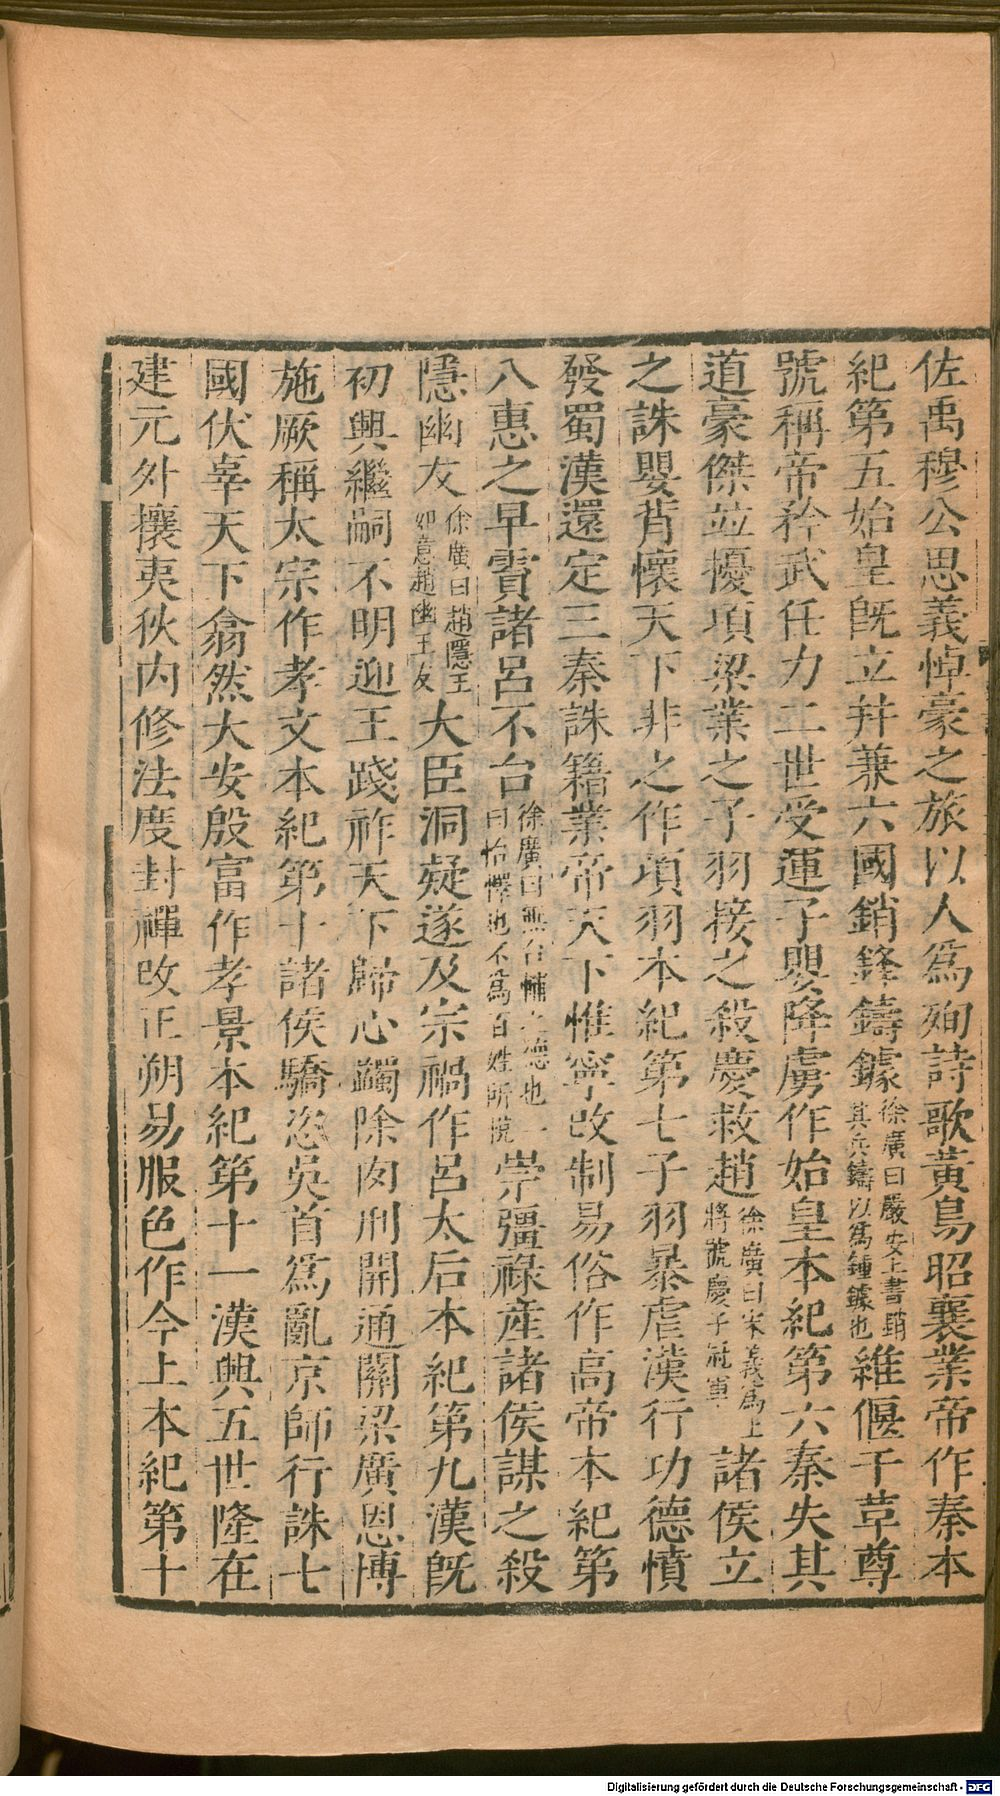 佐禹穆公思義悼豪之旅以人爲殉詩歌黃鳥昭襄業帝作秦本
紀第五始皇旣立幷兼六國銷鋒鑄鐻徐廣曰嚴安上書銷其兵鑄以爲鍾鐻也維偃干革尊
號稱帝矜武任力二世受運子嬰降虜作始皇本紀第六秦失其
道豪傑並擾項梁業之子羽接之殺慶救趙徐廣曰宋義爲上將號慶子冠軍諸侯立
之誅嬰背懷天下非之作項羽本紀第七子羽暴虐漢行功德憤
發蜀漢還定三秦誅籍業帝天下惟寧改制易俗作高帝本紀第
八惠之早霣諸呂不台徐廣曰無台輔之德也一曰怡懌也不爲百姓所悅崇彊祿産諸侯謀之殺
隱幽友徐廣曰趙隱王如意趙幽王友大臣洞疑遂及宗禍作呂太后本紀第九漢旣
初興繼嗣不明迎王踐祚天下歸心蠲除肉刑開通關梁廣恩博
施厥稱太宗作孝文本紀第十諸侯驕恣吳首爲亂京師行誅七
國伏辜天下翕然大安殷富作孝景本紀第十一漢興五世隆在
建元外攘夷狄內修法度封禪改正朔易服色作今上本紀第十
Digitalisierung gefördert durch die Deutsche Forschungsgemeinschaft - DFG